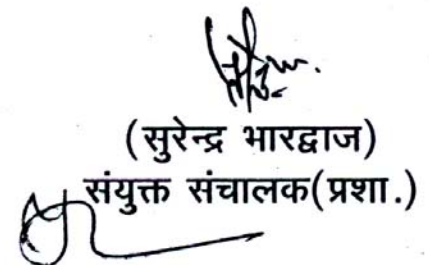 (सुरेन्द्र भारद्वाज)
संयुक्त संचालक(प्रशा.)